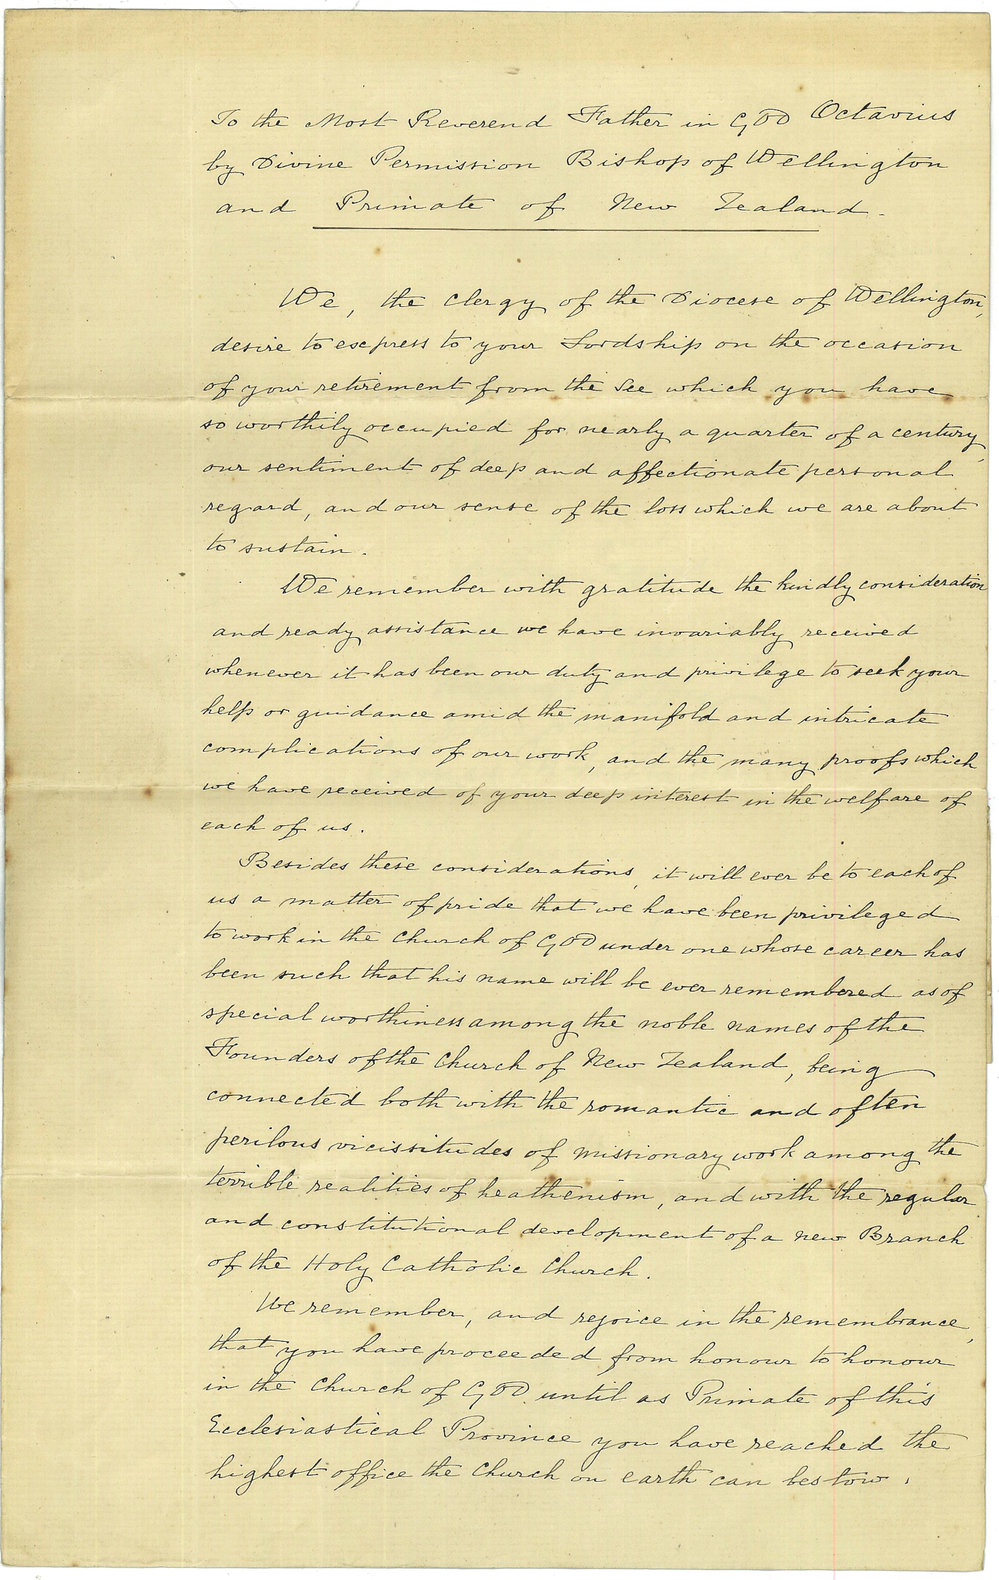 To the Most Reverend Father in GOD Octavius
by Divine Permission Bishop of Wellington
and Primate of New Zealand.
We, the Clergy of the Diocese of Wellington,
desire to express to your Lordship on the occasion
of your retirement from the See which you have
so worthily occupied for nearly a quarter of a century,
our sentiment of deep and affectionate personal
regard, and our sense of the loss which we are about
to sustain.
We remember with gratitude the kindly consideration
and ready assistance we have invariably received
whenever it has been our duty and privilege to seek your
help or guidance amid the manifold and intricate
complications of our work, and the many proofs which
we have received of your deep interest in the welfare of
each of us.
Besides these considerations, it will ever be to each of
us a matter of pride that we have been privileged
to work in the Church of GOD under one whose career has
been such that his name will be ever remembered as of
special worthiness among the noble names of the
Founders of the Church of New Zealand, being
connected both with the romantic and often
perilous vicissitudes of missionary work among the
terrible realities of heathenism, and with the regular
and constitutional development of a new Branch
of the Holy Catholic Church.
We remember, and rejoice in the remembrance,
that you have proceeded from honour to honour
in the Church of GOD. until as Primate of this
Ecclesiastical Province you have reached the
highest office the Church on earth can bestow.